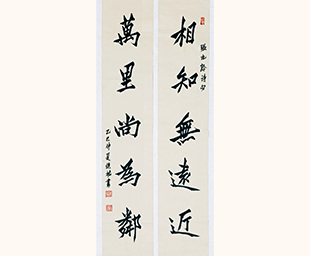 張九齡詩句
相知無遠近
萬里尚為鄰
乙巳仲夏書